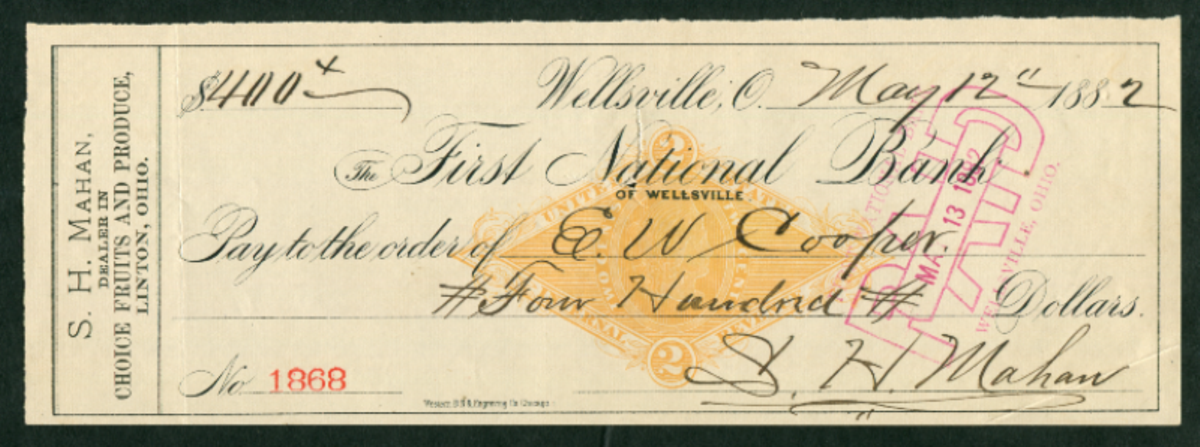 S. H. MAHAN,
DEALER IN
CHOICE FRUITS AND PRODUCE,
LINTON, OHIO.
$400 x
Wellsville, O. May 12" 1882
The First National Bank
OF WELLSVILLE
Pay to the order of E. W Cooper.
# Four Hundred # Dollars.
No. 1868
S. H. Mahan
2
UNITED STATES
INTERNAL REVENUE
2
PAID
MAY 13 1882
NATIONAL BANK
WELLSVILLE, OHIO.
Engraving Co. Chicago